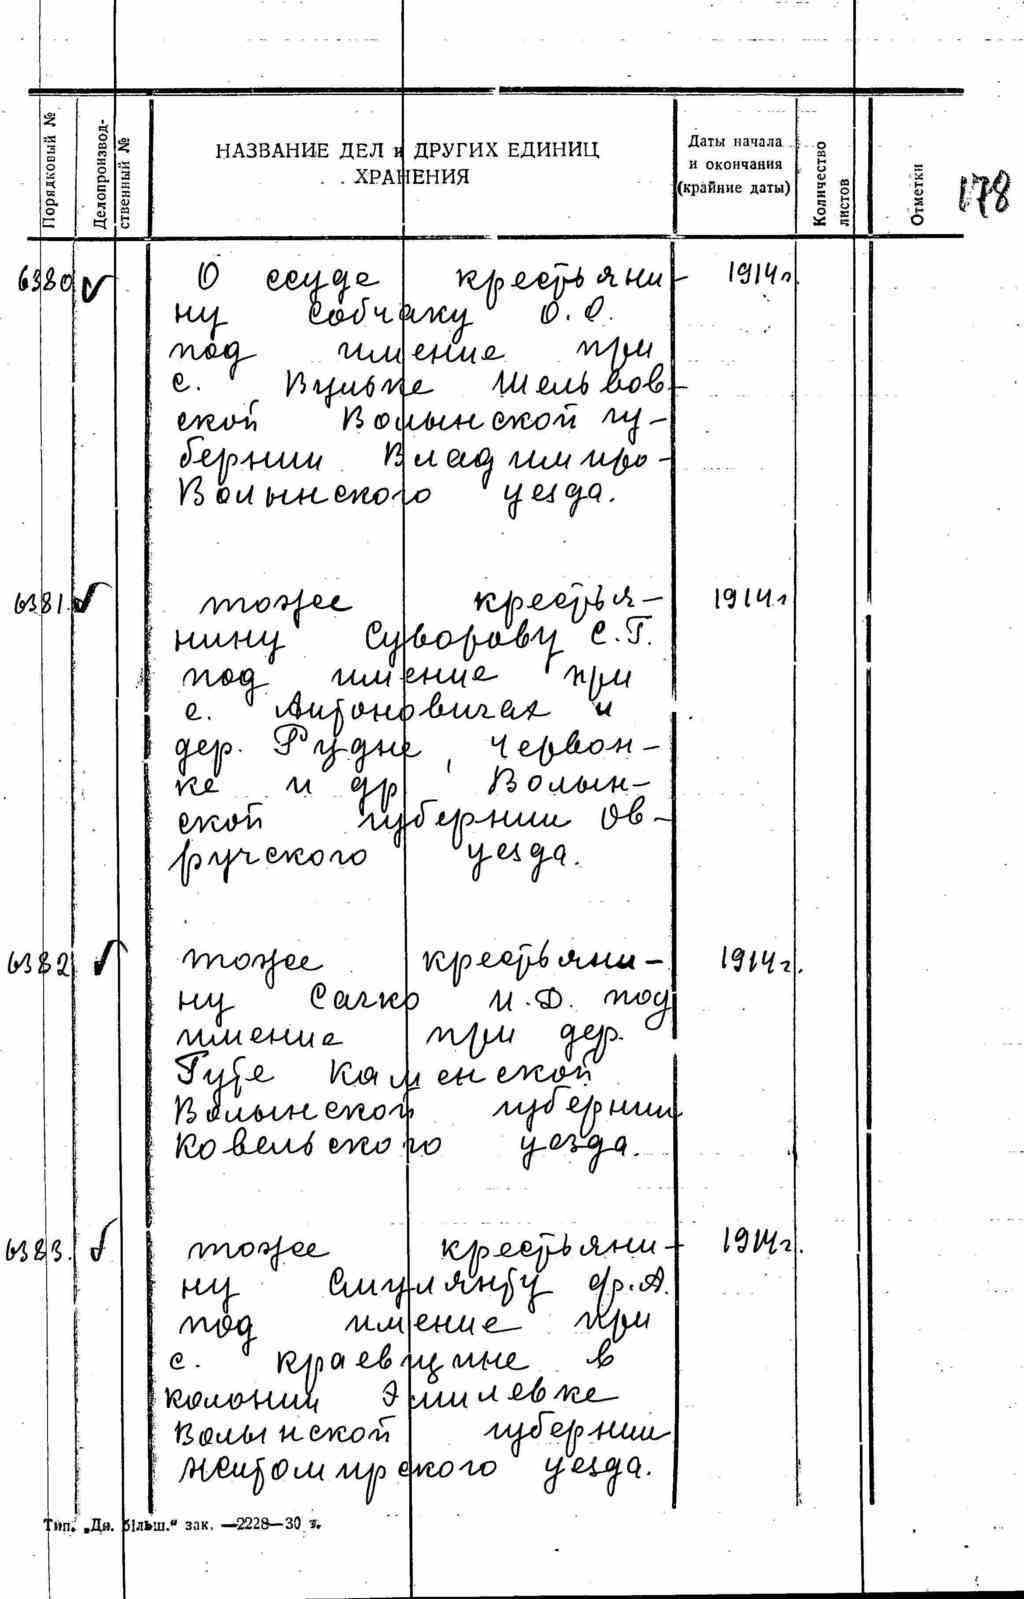 Порядковый №
Делопроизвод-
ственный №
НАЗВАНИЕ ДЕЛ и ДРУГИХ ЕДИНИЦ
ХРАНЕНИЯ
Даты начала
и окончания
(крайние даты)
Количество
листов
Отметки
178
6380 О ссуде крестьяни- 1914г
ну Собчаку О. О.
под имение при
с. Вульке Шельвов-
ской Волынской гу-
бернии Владимиро-
Волынского уезда.
6381. тоже крестья- 1914г
нину Суворову С. Г.
под имение при
с. Антоновичах и
дер. Рудне, Червон-
ке и др Волын-
ской губернии Ов-
ручского уезда.
6382 тоже крестьяни- 1914г.
ну Сачко И. Д. под
имение при дер.
Гуте Каменской
Волынской губернии
Ковельского уезда.
6383. тоже крестьяни- 1914г.
ну Смулянту Ф. А.
под имение при
с. Краевщине в
колонии Эмилевке
Волынской губернии
Житомирского уезда.
Тип. „Дн. більш.“ зак. —2228—30 т.